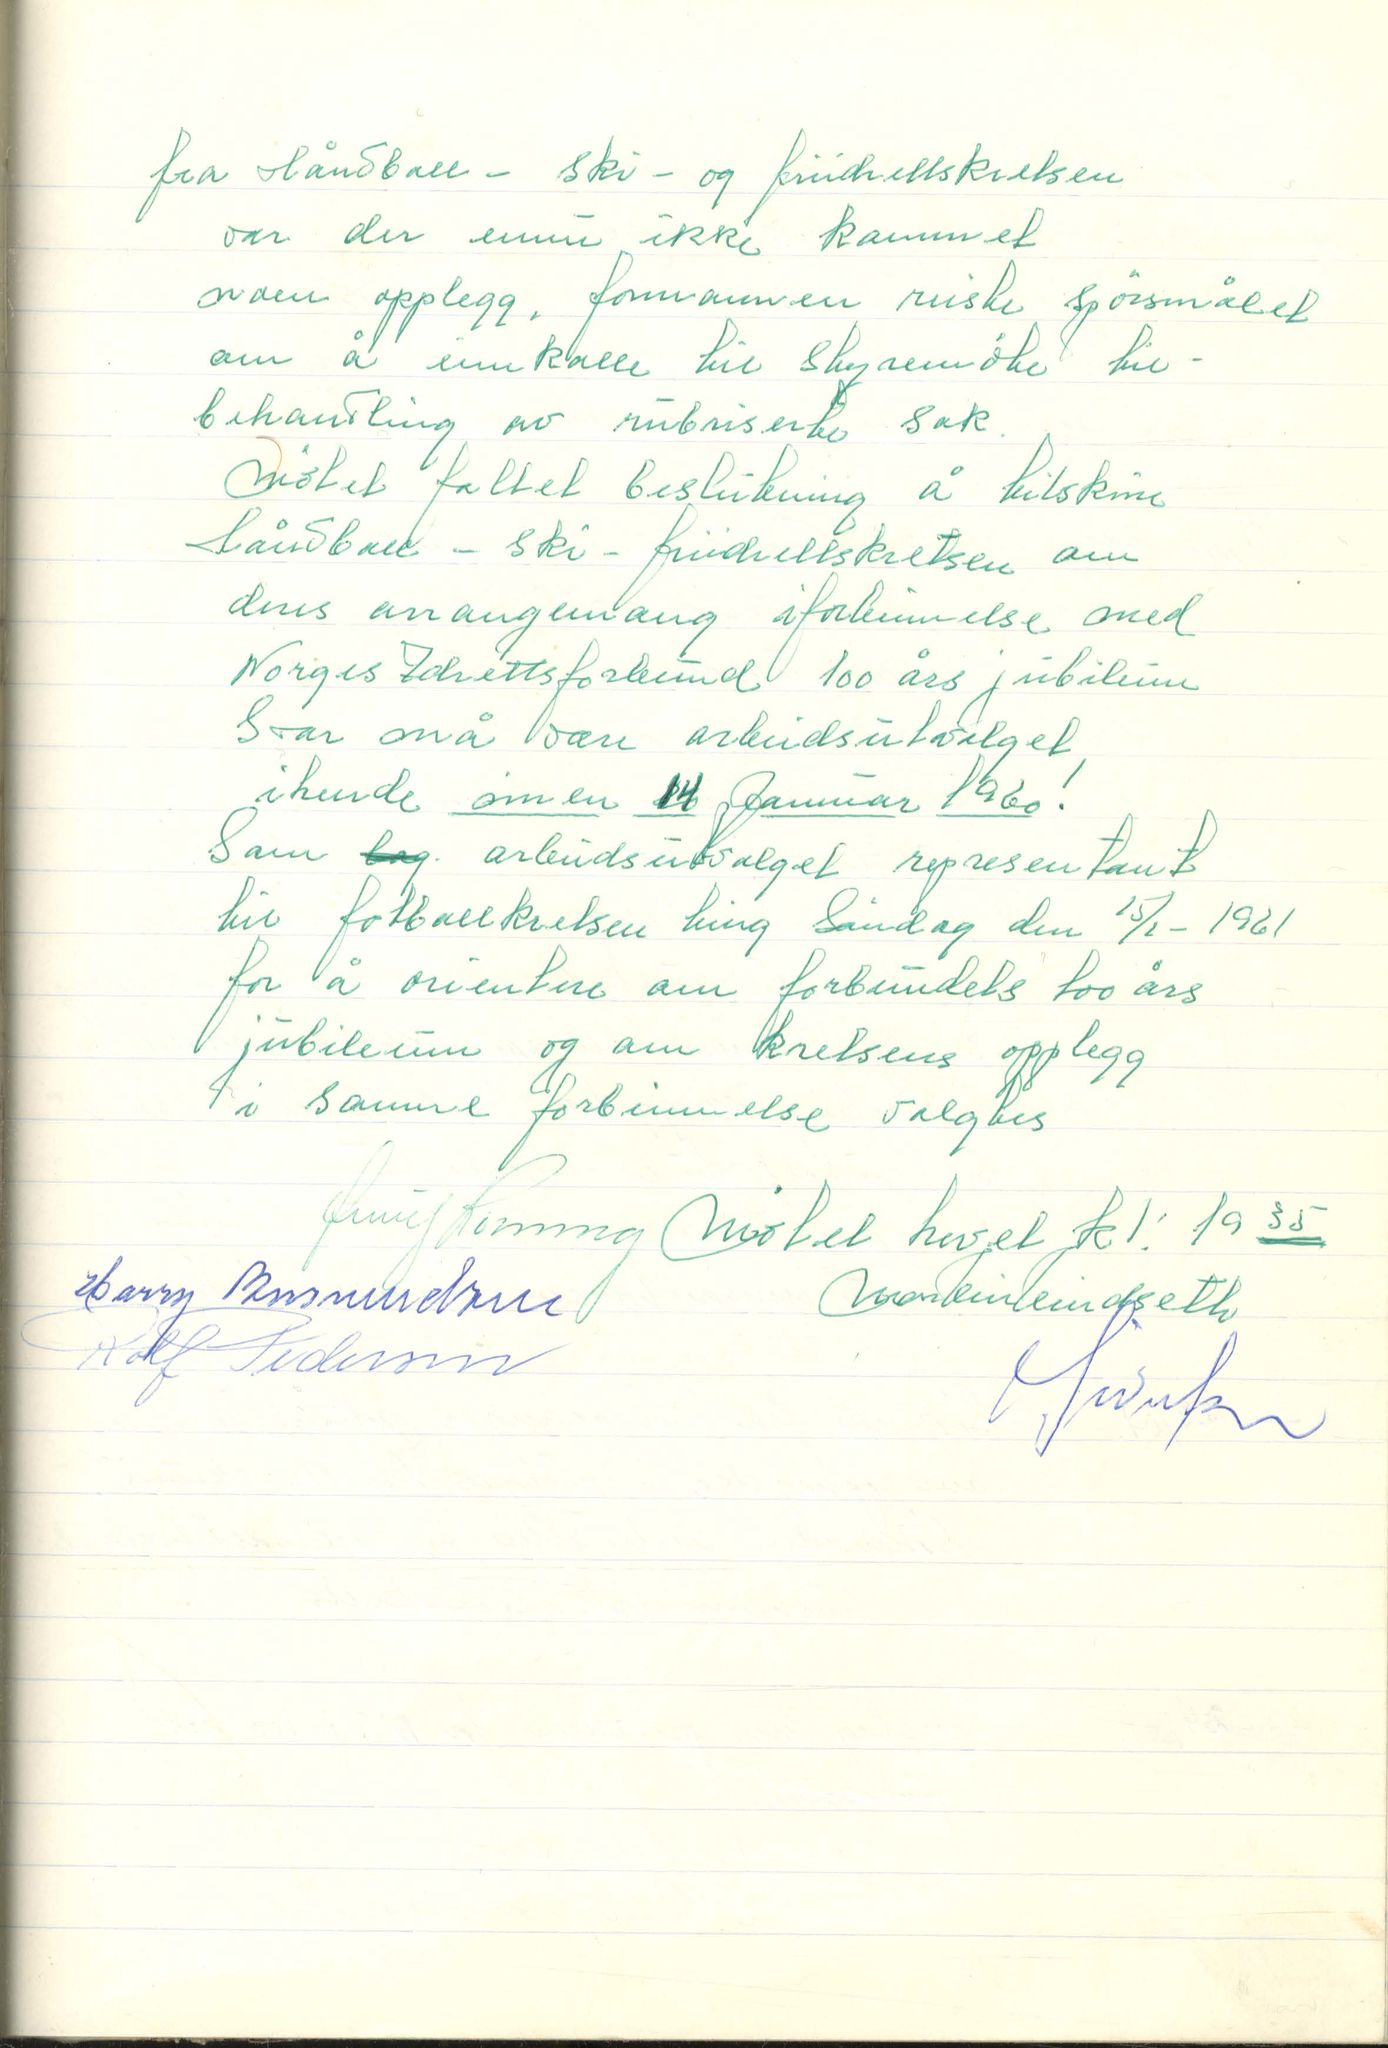 fra Håndball - ski - og friidrettskretsen
var der ennu ikke kommet
noen opplegg, formannen reiste spörsmålet
om å innkalle til styremöte til -
behandling av rubriserte sak.
Mötet fattet beslutning å tilskrive
Håndball - ski - friidrettskretsen om
deres arrangemang iforbinnelse med
Norges Idrettsforbund 100 års jubileum
Svar må være arbeidsutvalget
ihende innen 14 Januar 1960!
Som arbeidsutvalget representant
til fotballkretsen ting Söndag den 15/1 - 1961
for å orientere om forbundets 100 års
jubileum og om kretsens opplegg
i samme forbinnelse valgtes
Mötet hevet kl: 19 35
Harry
Rolf Pedersen